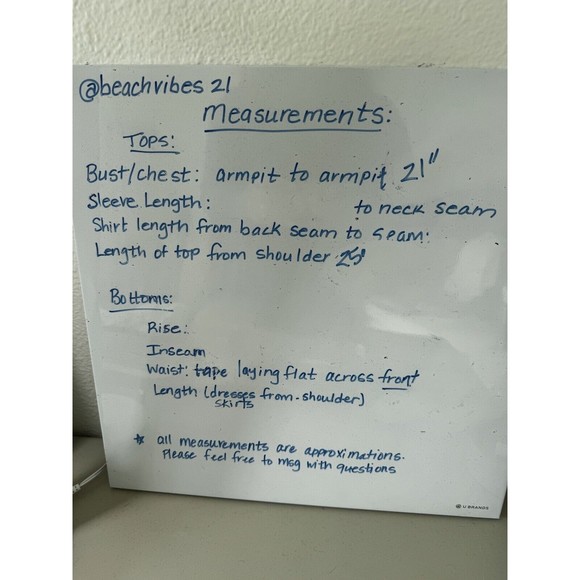 @beachvibes 21
Measurements:
TOPS:
Bust/chest: armpit to armpit 21"
Sleeve Length: to neck seam
Shirt length from back seam to seam:
Length of top from shoulder
Bottoms:
Rise:
Inseam
Waist: tape laying flat across front
Length (dresses from-shoulder)
skirts
* all measurements are approximations.
Please feel free to msg with questions
U BRANDS